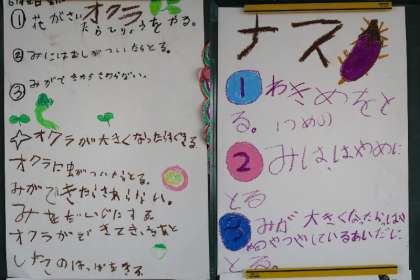 オクラ
①花がさいたらひりょうをやる。
②みにはむしがついたらとる。
③みができたらさわらない。
オクラが大きくなったらはをきる
オクラに虫がついたらとる。
みができたらさわらない。
みをだいじにする
オクラがでてきて
したのはっぱをきる
ナス
1 わきめをと
る。(つめる)
2 みは、はやめに
とる
3 みが大きくなったら、はや
つやつやしているあいだに
とる。